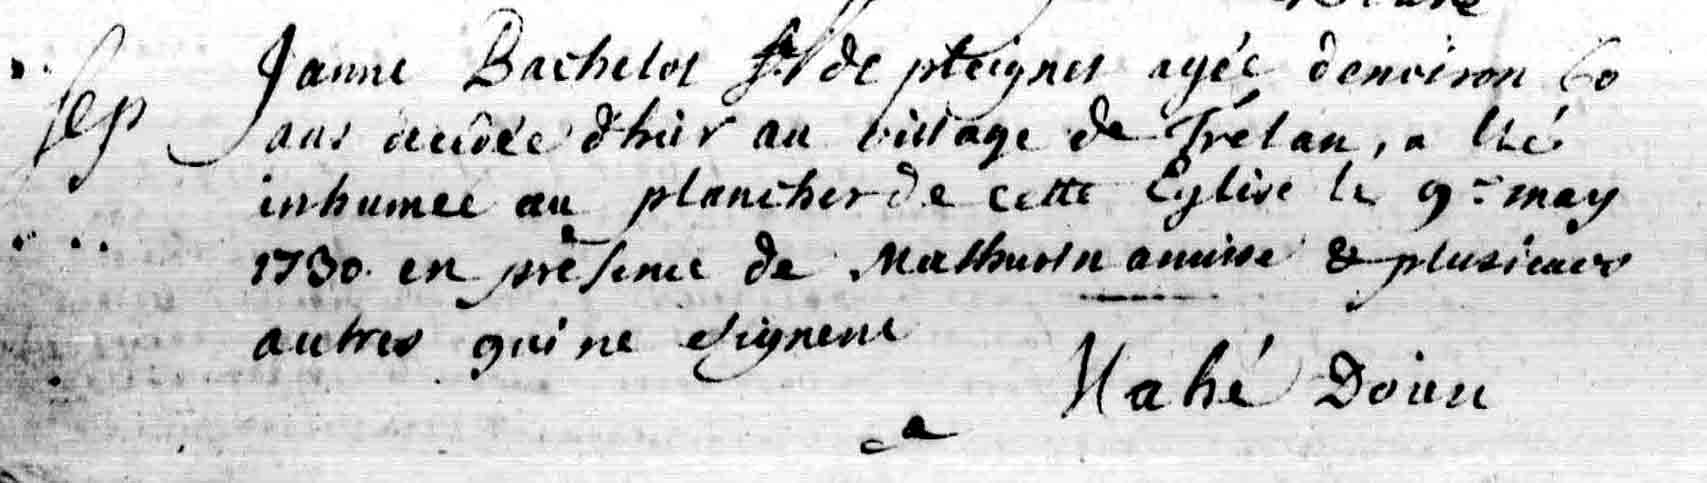 sep Janne Bachelot fe de pleignes agée denviron 60
ans decedee d'hier au village de Trélan, a eté
inhumee au plancher de cette Eglise le 9e may
1730 en presence de Mathurin &
plusieurs
autres qui ne signent
Mahé Doien